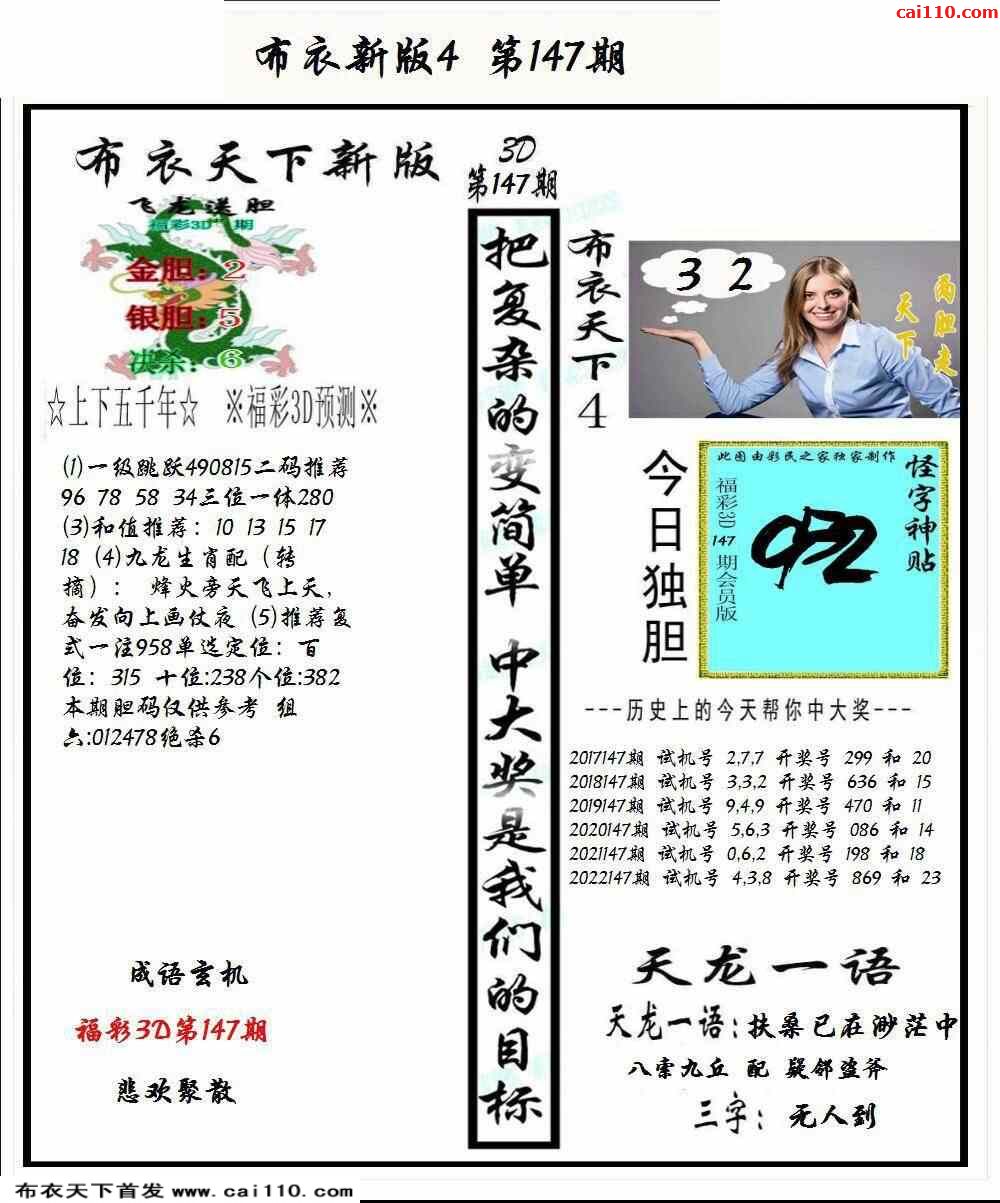 cai110.com
布衣新版4 第147期
布衣天下新版
飞龙送胆
福彩3D 期
金胆：2
银胆：5
决杀：6
☆上下五千年☆ ※福彩3D预测※
(1)一级跳跃490815二码推荐
96 78 58 34三位一体280
(3)和值推荐：10 13 15 17
18 (4)九龙生肖配（转
摘）： 烽火旁天飞上天，
奋发向上画仗夜 (5)推荐复
式一注958单选定位：百
位：315 十位:238个位:382
本期胆码仅供参考 组
六:012478绝杀6
成语玄机
福彩3D第147期
悲欢聚散
3D
第147期
把复杂的变简单 中大奖是我们的目标
布衣天下4
3 2
两胆走
天下
今日独胆
此图由彩民之家独家制作
福彩3D 147 期会员版
怪字神贴
---历史上的今天帮你中大奖---
2017147期 试机号 2,7,7 开奖号 299 和 20
2018147期 试机号 3,3,2 开奖号 636 和 15
2019147期 试机号 9,4,9 开奖号 470 和 11
2020147期 试机号 5,6,3 开奖号 086 和 14
2021147期 试机号 0,6,2 开奖号 198 和 18
2022147期 试机号 4,3,8 开奖号 869 和 23
天龙一语
天龙一语：扶桑已在渺茫中
八索九丘 配 疑邻盗斧
三字：无人到
布衣天下首发 www.cai110.com